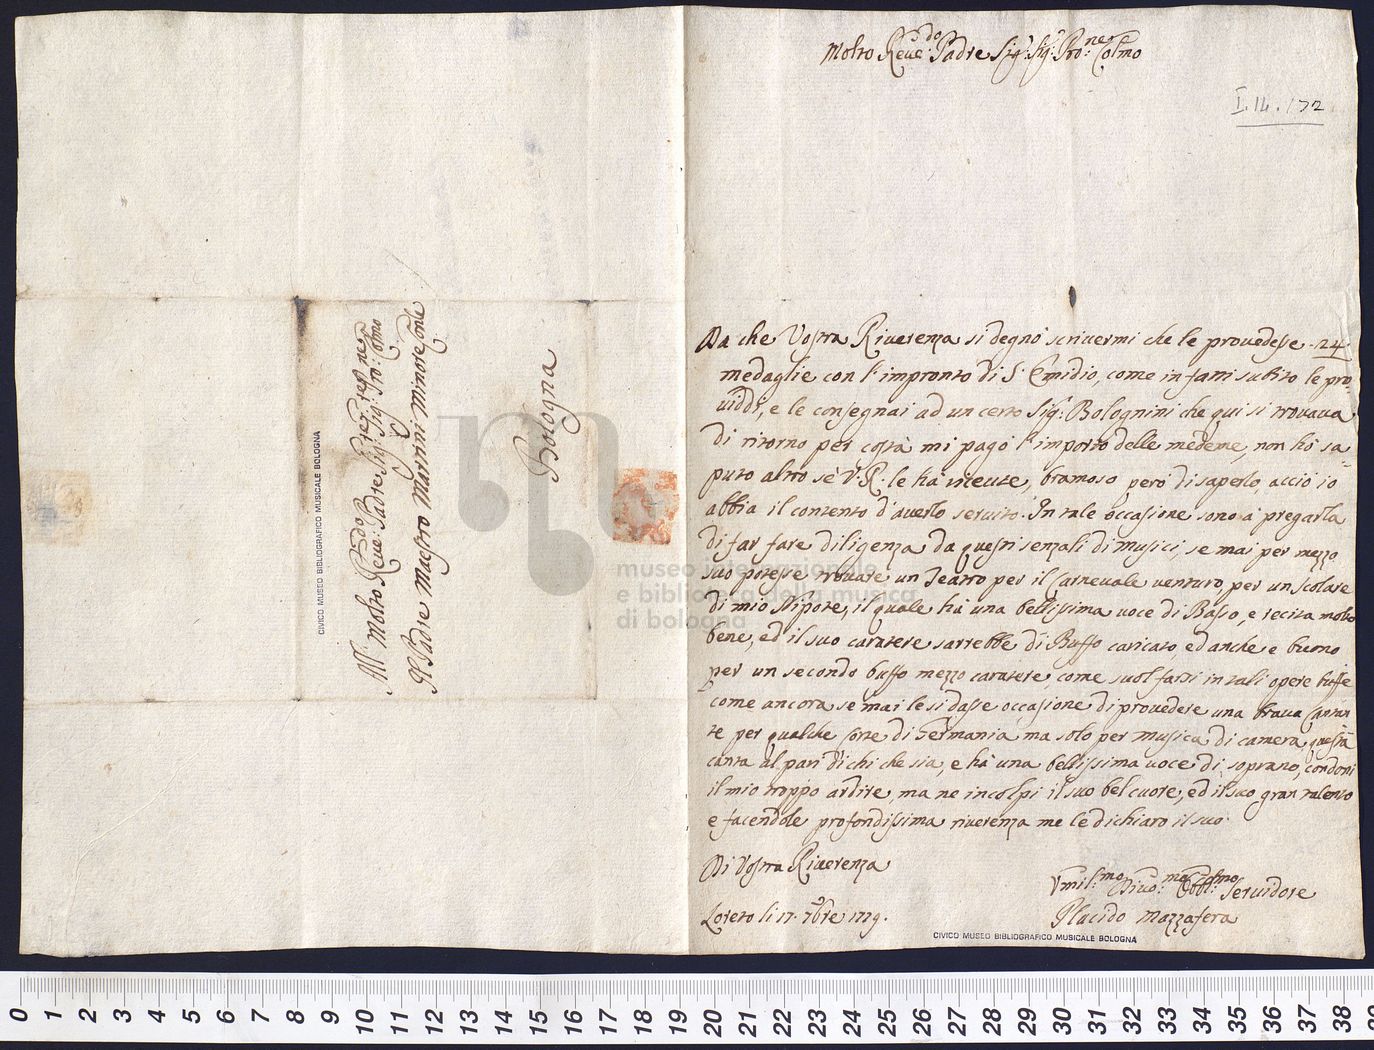 Molto Reve:do Padre Sig: Sig: Pro:ne Colmo
I.14.172
Da che Vostra Riverenza si degnò scrivermi che le provedesse 24
medaglie con l'impronto di S. Emidio, come in fatti subito le pro=
viddi, e le consegnai ad un certo Sig: Bolognini che qui si trovava
di ritorno per costà mi pagò l'importo delle medeme, non hò sa=
puto altro sè V. R. le ha riceute, bramoso però di saperlo, acciò io
abbia il contento d'averlo servito. In tale occasione sono à pregarla
di far fare diligenza da questi senzali di Musici, se mai per mezzo
suo potesse trovare un Teatro per il Carnevale venturo, per un scolare
di mio Nipote, il quale hà una bellissima voce di Basso, e recita molto
bene, ed il suo caratere sarrebbe di Buffo caricato ed anche e buono
per un secondo buffo mezzo caratere, come suol farsi in tali opere buffe
come ancora se mai le si dasse occasione di provedere una brava Cantan
te per qualche Corte di Germania ma solo per musica di camera, questa
canta al pari di chi che sia, e hà una bellissima voce di soprano, condoni
il mio troppo ardire, ma ne incolpi il suo bel cuore, ed il suo gran talento
e facendole profondissima riverenza me le dichiaro il suo
Di Vostra Riverenza
Loreto li 17. 9bre 1779.
Vmil:mo Divo:mo Obbl:mo Servidore
Placido Mazzafera
CIVICO MUSEO BIBLIOGRAFICO MUSICALE BOLOGNA
All Molto Reve:do Padre Sig: Sig: Pro:ne Colmo
Il Padre Maestro Martini Minore Conle
Bologna
CIVICO MUSEO BIBLIOGRAFICO MUSICALE BOLOGNA
museo internazionale
e biblioteca della musica
di bologna
0 1 2 3 4 5 6 7 8 9 10 11 12 13 14 15 16 17 18 19 20 21 22 23 24 25 26 27 28 29 30 31 32 33 34 35 36 37 38 39